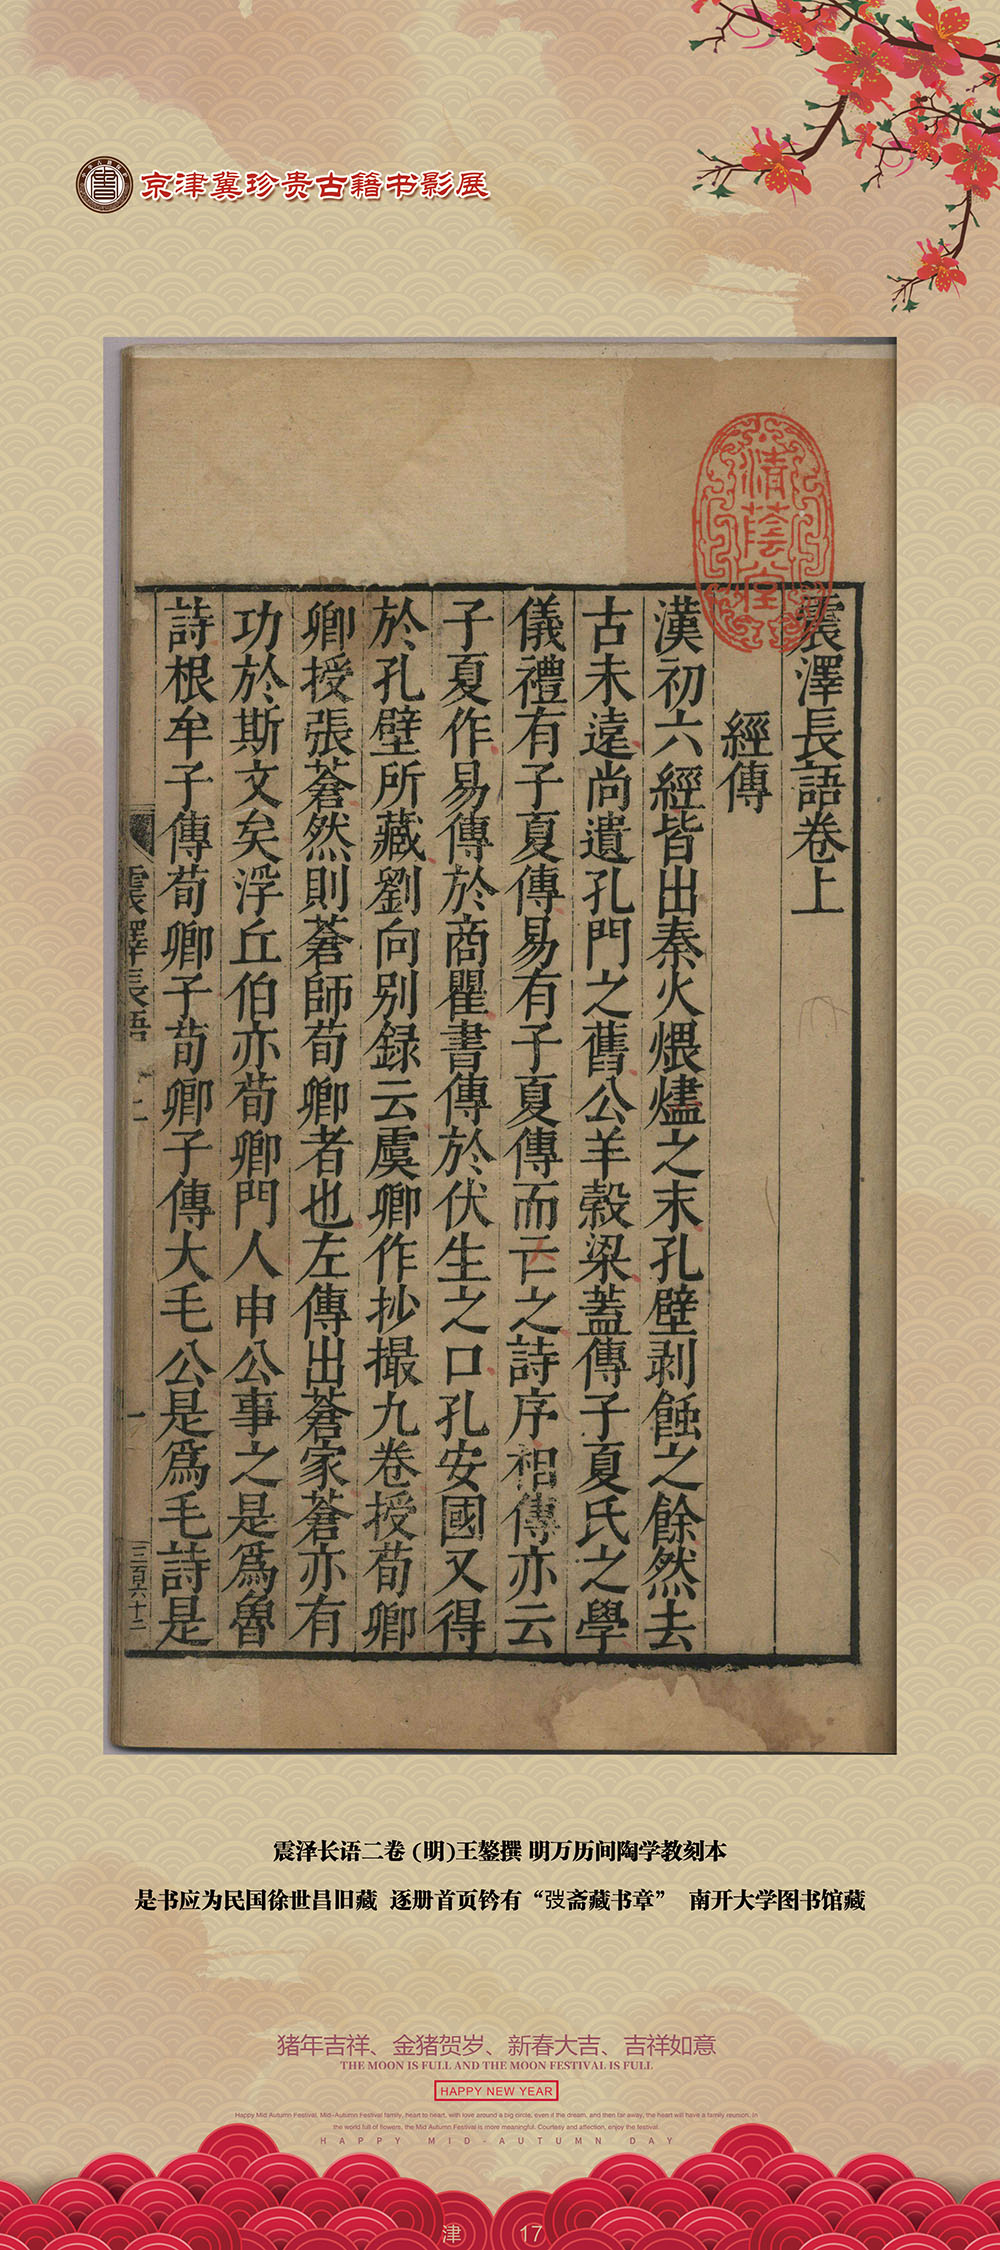 京津冀珍贵古籍书影展
清蔭堂
震澤長語卷上
經傳
漢初六經皆出秦火煨燼之末孔壁剥蝕之餘然去
古未遠尚遺孔門之舊公羊穀梁蓋傳子夏氏之學
儀禮有子夏傳易有子夏傳而亡之詩序相傳亦云
子夏作易傳於商瞿書傳於伏生之口孔安國又得
於孔壁所藏劉向别録云虞卿作抄撮九卷授荀卿
卿授張蒼然則蒼師荀卿者也左傳出蒼家蒼亦有
功於斯文矣浮丘伯亦荀卿門人申公事之是爲魯
詩根牟子傳荀卿子荀卿子傳大毛公是爲毛詩是
震澤長語
一
三百六十二
震泽长语二卷 (明)王鏊撰 明万历间陶学教刻本
是书应为民国徐世昌旧藏 逐册首页钤有“弢斋藏书章” 南开大学图书馆藏
猪年吉祥、金猪贺岁、新春大吉、吉祥如意
THE MOON IS FULL AND THE MOON FESTIVAL IS FULL
HAPPY NEW YEAR
Happy Mid Autumn Festival, Mid-Autumn Festival family, heart to heart, with love around a big circle, even if the dream, and then far away, the heart will have a family reunion. In
the world full of flowers, the Mid Autumn Festival is more meaningful. Courtesy and affection, enjoy the festival.
HAPPY MID-AUTUMN DAY
津 17